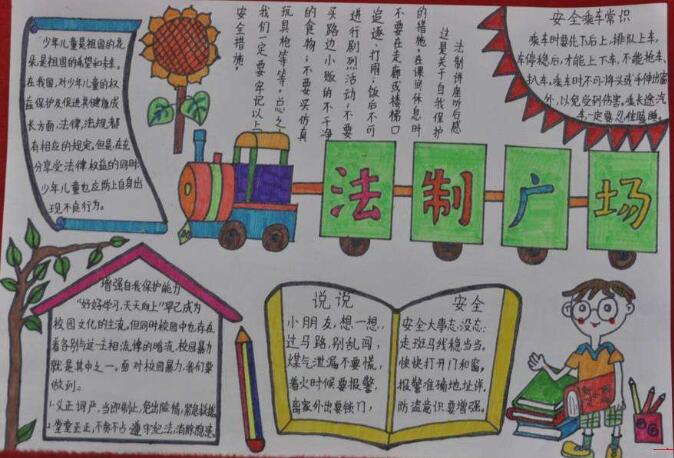 少年儿童是祖国的花
朵,是祖国的希望和未来。
在我国,对少年儿童的权
益保护及促进其健康成
长方面,法律,法规都
有相应的规定,但是在充
分享受法律权益的同时
少年儿童也应防止自身出
现不良行为。
法制讲座听后感
这是关于自我保护
的措施。在课间休息时
不要在走廊或楼梯口
追逐、打闹;饭后不可
进行剧烈活动;不要
买路边小贩的不干净
的食物;不要买仿真
玩具枪等等。总之
我们一定要牢记以上
安全措施。
安全乘车常识
乘车时要先下后上,排队上车,
车停稳后,才能上下车,不能抢车、
扒车,乘车时不可将头或手伸出窗
外,以免受到伤害,乘长途汽
车一定要忍住瞌睡。
法制广场
增强自我保护能力
“好好学习,天天向上”早已成为
校园文化的主流,但同时校园中也存在
着各别与这一主相流律的暗流,校园暴力
就是其中之一。面对校园暴力,我们要
做到:
1.义正词严,当即制止,免出险情,紧急救援
2.堂堂正正,不务不占,遵守纪法,消除隐患
说说
小朋友,想一想,
过马路,别乱闯,
煤气泄漏不要慌,
着火时候要报警,
离家外出要锁门,
安全
安全大事忘没忘:
走斑马线稳当当。
快快打开门和窗。
报警准确地址详。
防盗意识要增强。